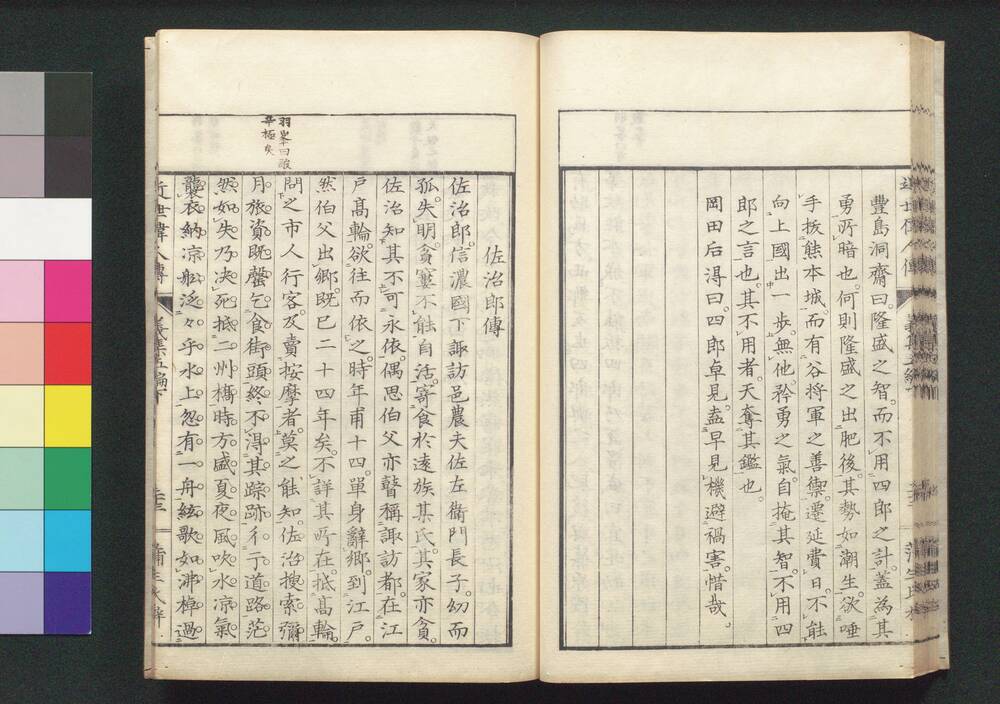 豐島洞齋曰。隆盛之智。而不用四郎之計。蓋為其
勇所暗也。何則隆盛之出肥後。其勢如潮生。欲唾
手拔熊本城。而有谷将軍之善禦。遷延費日。不能
向上國出一歩。無他。矜勇之氣。自掩其智。不用四
郎之言也。其不用者。天奪其鑑也。
岡田后得曰。四郎卓見。盍早見機避禍害。惜哉。
佐治郎傳
佐治郎。信濃國下諏訪邑農夫佐左衞門長子。幼而
孤。失明。貧窶不能自活。寄食於遠族某氏。其家亦貧。
佐治知其不可永依。偶思伯父亦瞽。稱諏訪都。在江
戸高輪。欲往而依之。時年甫十四。單身辭郷。到江戸。
然伯父出郷。既已二十四年矣。不詳其所在。抵高輪
問之市人行客。及賣按摩者。莫之能知。佐治搜索彌
月。旅資既罄。乞食街頭。終不得其踪跡。彳亍道路。茫
然如失。乃决死。抵二州橋。時方盛夏。夜風吹水。凉氣
襲衣。納凉船泛々乎水上。忽有一舟。絃歌如沸。棹過
羽峯曰敬
辛極矣
近世偉人傳
義集五編下
蒲生氏梓